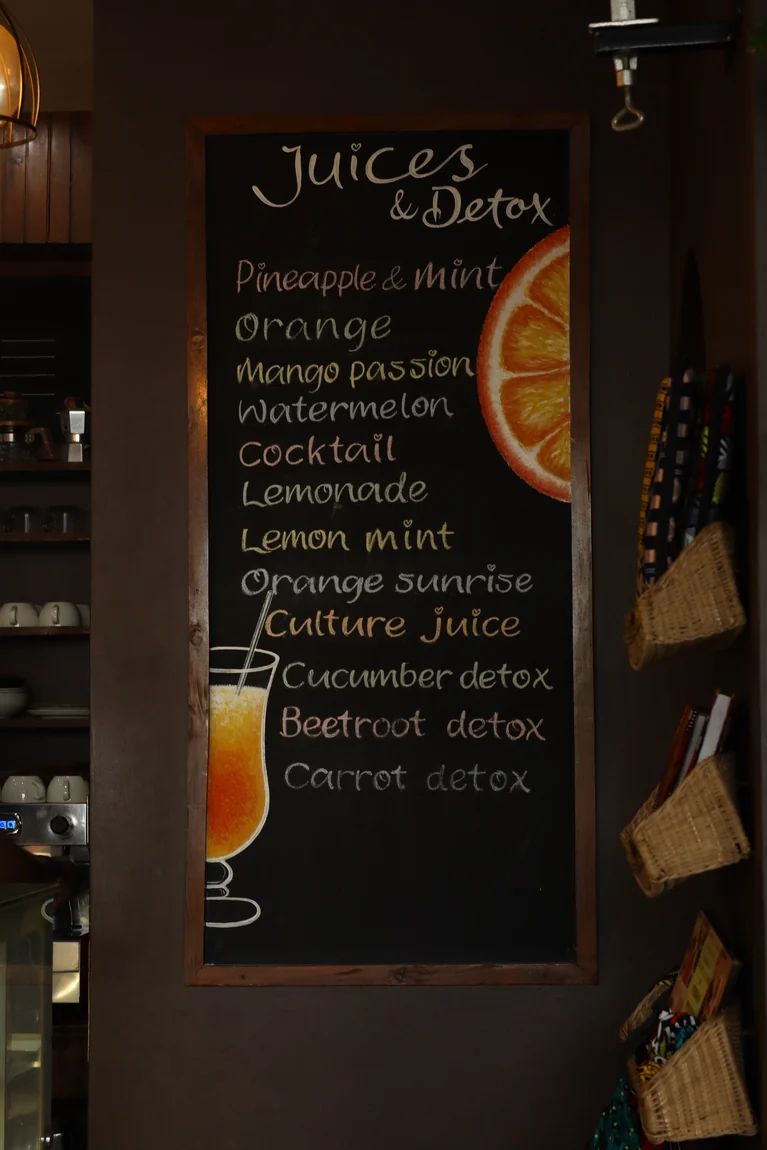 Juices
& Detox
Pineapple & mint
Orange
Mango passion
Watermelon
Cocktail
Lemonade
Lemon mint
Orange sunrise
Culture juice
Cucumber detox
Beetroot detox
Carrot detox